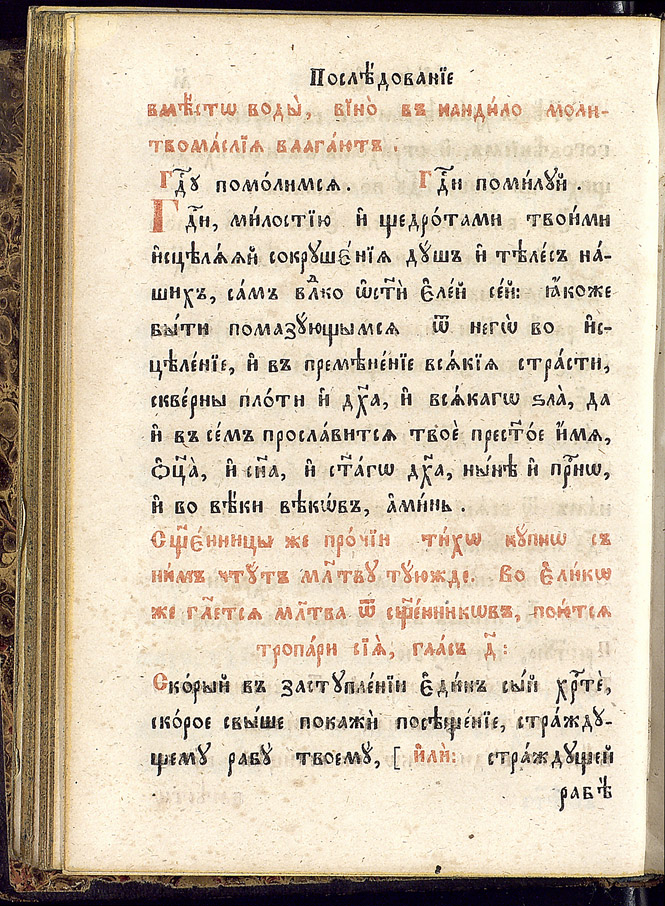 Послѣ́дованїе
вмѣ́стѡ воды̀, вїно̀ въ кандило моли-
твома́слїя влага́ютъ .
Гдⷭ҇у помо́лимся . Гдⷭ҇и поми́луй .
Гдⷭ҇и, ми́лостїю и҆ щедро́тами твои́ми
и҆сцѣлѧ́яй сокруше́нїя ду́шъ и҆ тѣле́съ на́-
шихъ, са́мъ влⷣко ѡ҆ст҃ѝ є҆ле́й се́й: ꙗ҆́коже
бы́ти помазующымся ѿ негѡ̀ во и҆с-
цѣле́нїе, и҆ въ премѣне́нїе вся́кїя стра́сти,
скве́рны пло́ти и҆ дх҃а, и҆ вся́кагѡ ѕла̀, да
и҆ въ се́мъ просла́вится твоѐ прест҃о́е и҆́мя,
ѻ҆ц҃а̀, и҆ сн҃а, и҆ ст҃а́гѡ дх҃а, ны́нѣ и҆ прⷭ҇нѡ,
и҆ во вѣ́ки вѣкѡ́въ, а҆ми́нь .
Сщ҃е́нницы же про́чїи ти́хѡ кꙋпнѡ съ
ни́мъ чтꙋ́тъ мл҃твꙋ тꙋюжде. Во є҆ли́кѡ
же гл҃ется мл҃тва ѿ сщ҃е́нникѡвъ, пою́тся
тропарѝ сїѧ̀, гла́съ д҃:
Ско́рый въ застꙋпле́нїи є҆ди́нъ сы́й хрⷭ҇тѐ,
ско́рое свы́ше покажѝ посѣще́нїе, стра́ждꙋ-
щемꙋ рабꙋ̀ твоемꙋ̀, [ и҆лѝ: стра́ждꙋщей
рабѣ̀